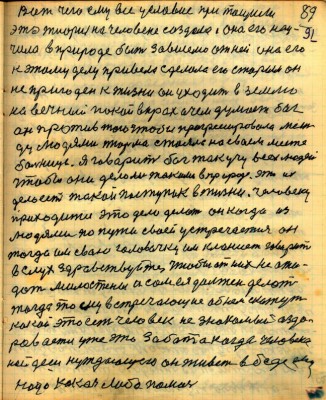 Вот чего ему все условие притащили 89
это творил на человека создала, она его нау- 91
чила в природе быть зависимо от ней она его
к этому делу привела сделала его старым он
не пригоден к жизни он уходит в землю
на вечный покой в прах а чем думает бог
он против того чтобы прогрессировала меж-
ду людями тюрма стояла на своем месте
больница. Я говорит бог таку учу всех людей
чтобы они делали таким в природе. это их
делает такой поступок в жизни. Человеку
приходится это дело делать он когда из
людями по пути своей устречается он
тогда им свою головочку им клоняет говорит
в слух здравствуйте, чтобы от них не ожи-
дать милостени а сам ея должен делать
тогда то ему встречающие об нем скажут
какой это есть человек не знакомый а здо-
равается уже это забота когда человека
найдеш нуждающего он живет в беде ему
надо какая либо помощь